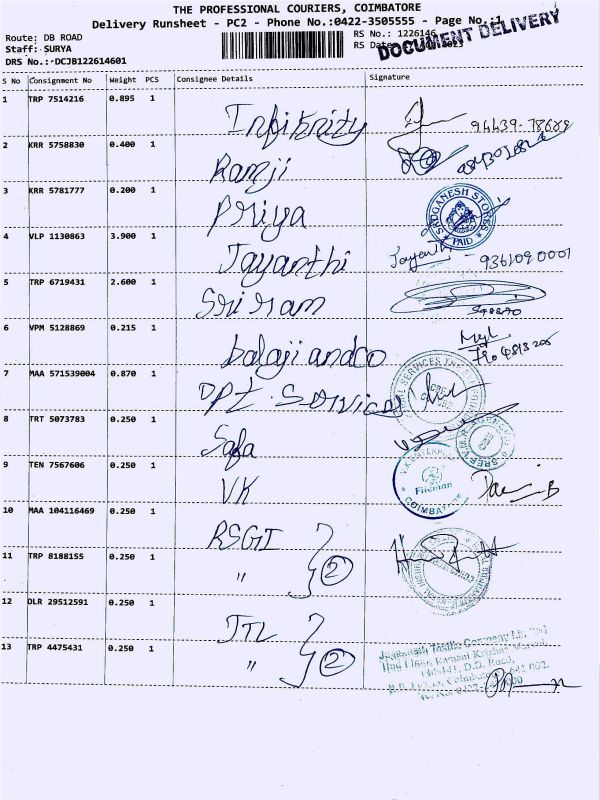 THE PROFESSIONAL COURIERS, COIMBATORE
Delivery Runsheet - PC2 - Phone No.:0422-3505555 - Page No.:1
Route: DB ROAD
Staff: SURYA
DRS No.:-DCJB122614601
RS No.: 1226146
RS Date
DOCUMENT DELIVERY
S No Consignment No Weight PCS Consignee Details Signature
1 TRP 7514216 0.895 1 Infiknity
2 KRR 5758830 0.400 1 Ramji
3 KRR 5781777 0.200 1 Priya SRI GANESH STORES PAID
4 VLP 1130863 3.900 1 Jayanthi Jayanthi - 9361090001
5 TRP 6719431 2.600 1 Sriram
6 VPM 5128869 0.215 1 balaji andco
7 MAA 571539004 0.870 1 DPZ Services
8 TRT 5073783 0.250 1 Safa
9 TEN 7567606 0.250 1 VK COIMBATORE
10 MAA 104116469 0.250 1 RSGI
11 TRP 8188155 0.250 1 " 2
12 DLR 29512591 0.250 1 JTL
13 TRP 4475431 0.250 1 " 2